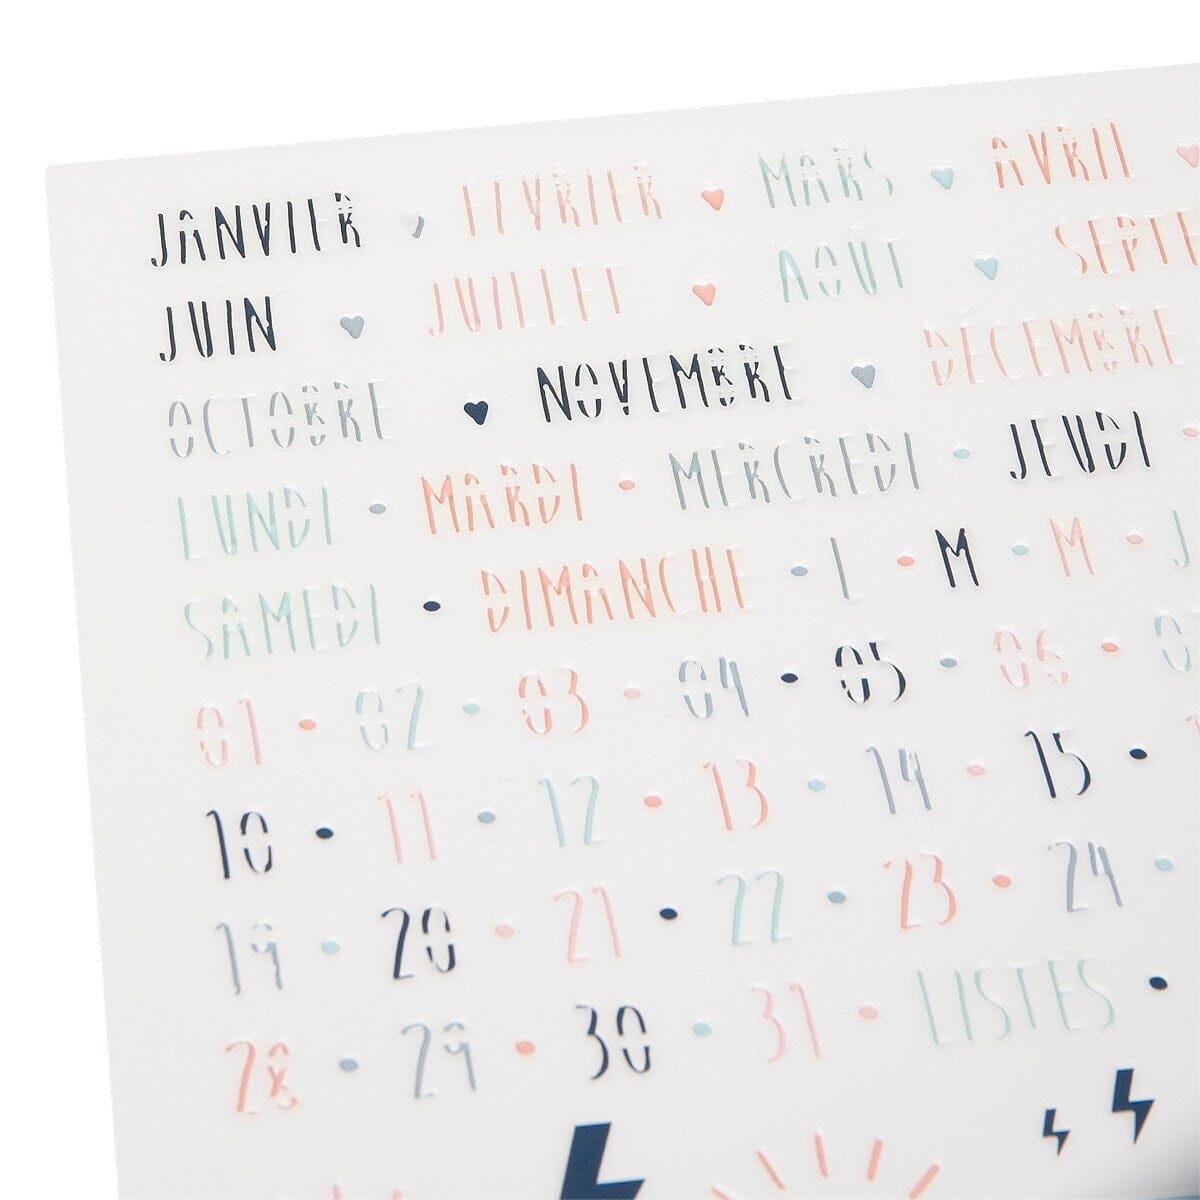 JANVIER FÉVRIER MARS AVRIL
JUIN JUILLET AOÛT SEPTE
OCTOBRE NOVEMBRE DÉCEMBRE
LUNDI • MARDI • MERCREDI • JEUDI •
SAMEDI • DIMANCHE • L • M • M • J
01 • 02 • 03 • 04 • 05 • 06 • 0
10 • 11 • 12 • 13 • 14 • 15 •
19 • 20 • 21 • 22 • 23 • 24 •
28 • 29 • 30 • 31 • LISTES •